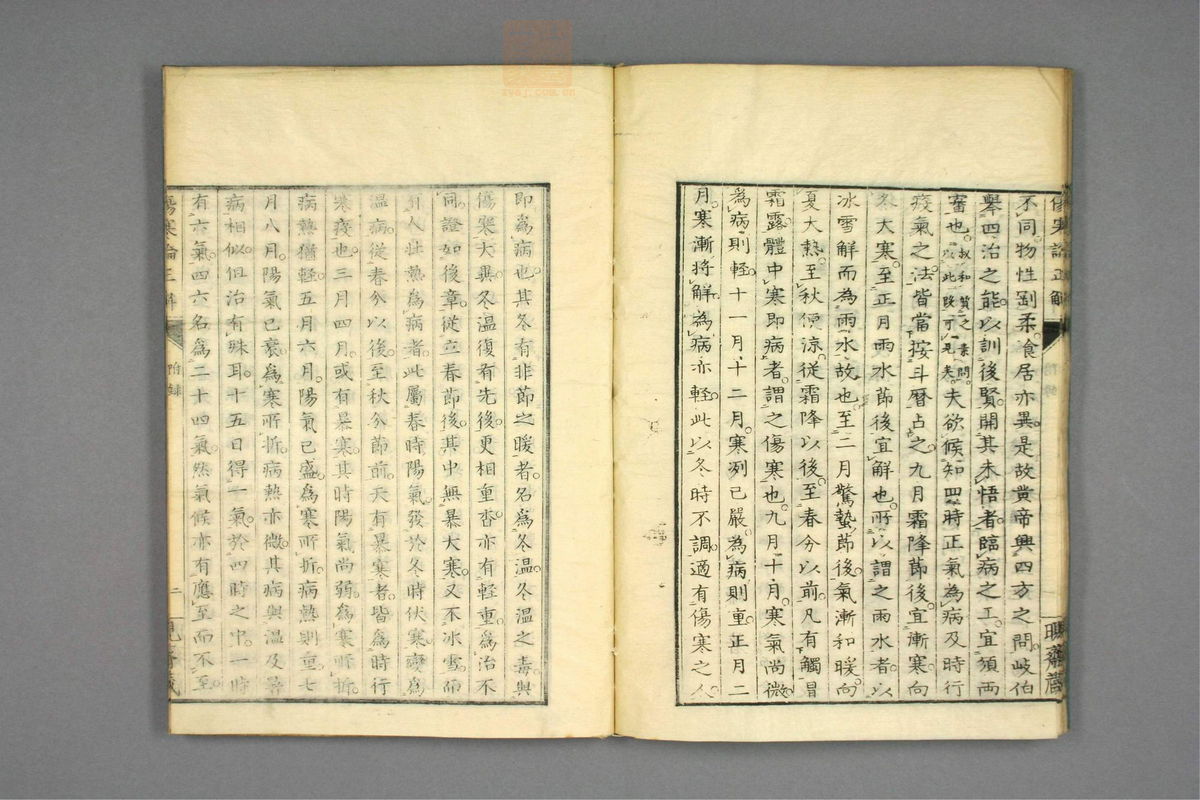 傷寒論正解
聽齋藏
不同。物性剛柔。飡居亦異。是故黄帝興四方之問。岐伯
舉四治之能。以訓後賢。開其未悟者。臨病之工。宜須兩
審也。叔和贊之素問。以此既可見矣。夫欲候知四時正氣為病。及時行
疫氣之法。皆當按斗暦占之。九月霜降節後。宜漸寒。向
冬大寒。至正月雨水節後。宜解也。所以謂之雨水者。以
冰雪解而為雨水故也。至二月驚蟄節後。氣漸和暖。向
夏大熱。至秋便涼。從霜降以後。至春分以前。凡有觸冒
霜露。體中寒即病者。謂之傷寒也。九月十月。寒氣尚微。
為病則輕。十一月十二月。寒冽已嚴。為病則重。正月二
月。寒漸將解。為病亦輕。此以冬時不調。適有傷寒之人。
即爲病也。其冬有非節之暖者。名爲冬温。冬温之毒。與
傷寒大異。冬温復有先後。更相重沓。亦有輕重。爲治不
同。證如後章。從立春節後。其中無暴大寒。又不冰雪。而
有人壯熱爲病者。此屬春時陽氣。發於冬時伏寒。變爲
温病。從春分以後。至秋分節前。天有暴寒者。皆爲時行
寒疫也。三月四月。或有暴寒。其時陽氣尚弱。爲寒所折。
病熱猶輕。五月六月。陽氣已盛。爲寒所折。病熱則重。七
月八月。陽氣已衰。爲寒所折。病熱亦微。其病與温及暑
病相似。但治有殊耳。十五日得一氣。於四時之中。一時
有六氣。四六名爲二十四氣。然氣候亦有應至而不至。
傷寒論正解
附録
二